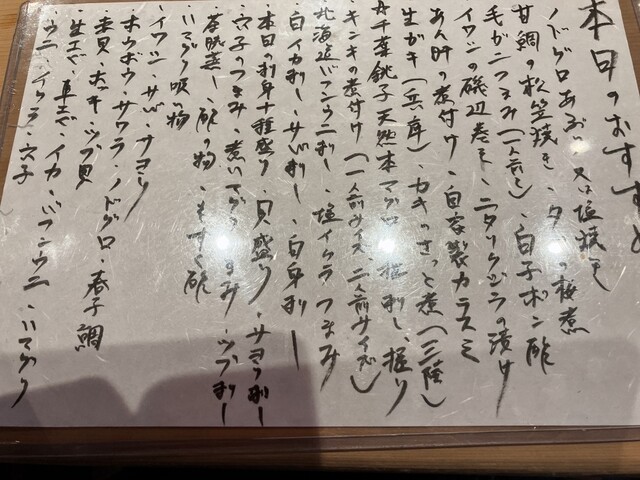 本日のおすすめ
ノドグロあぶり 又は塩焼き
甘鯛の松笠焼き・タコの桜煮
毛がにつまみ(一人前)・白子ポン酢
イワシの磯辺巻き・ニタリクジラの漬け
あん肝の煮付け・自家製カラスミ
生がき(兵庫)・カキのさっと煮(三陸)
千葉銚子天然本マグロ 刺し、握り
キンキの煮付け(一人前サイズ、二人前サイズ)
北海道バフンウニ刺し・塩イクラつまみ
白イカ刺し・サバ刺し・白身刺し
本日の刺身十種盛り・貝盛り・サヨリ刺し
穴子のつまみ・煮ハマグリつまみ・ツブ刺し
茶碗蒸し・酢の物・もずく酢
ハマグリ吸い物
・イワシ・サバ・サヨリ
ホウボウ・サワラ・ノドグロ・春子鯛
・赤貝・ホッキ・ツブ貝
・生エビ・車エビ・イカ・バフンウニ・ハマグリ
ウニ・イクラ・穴子